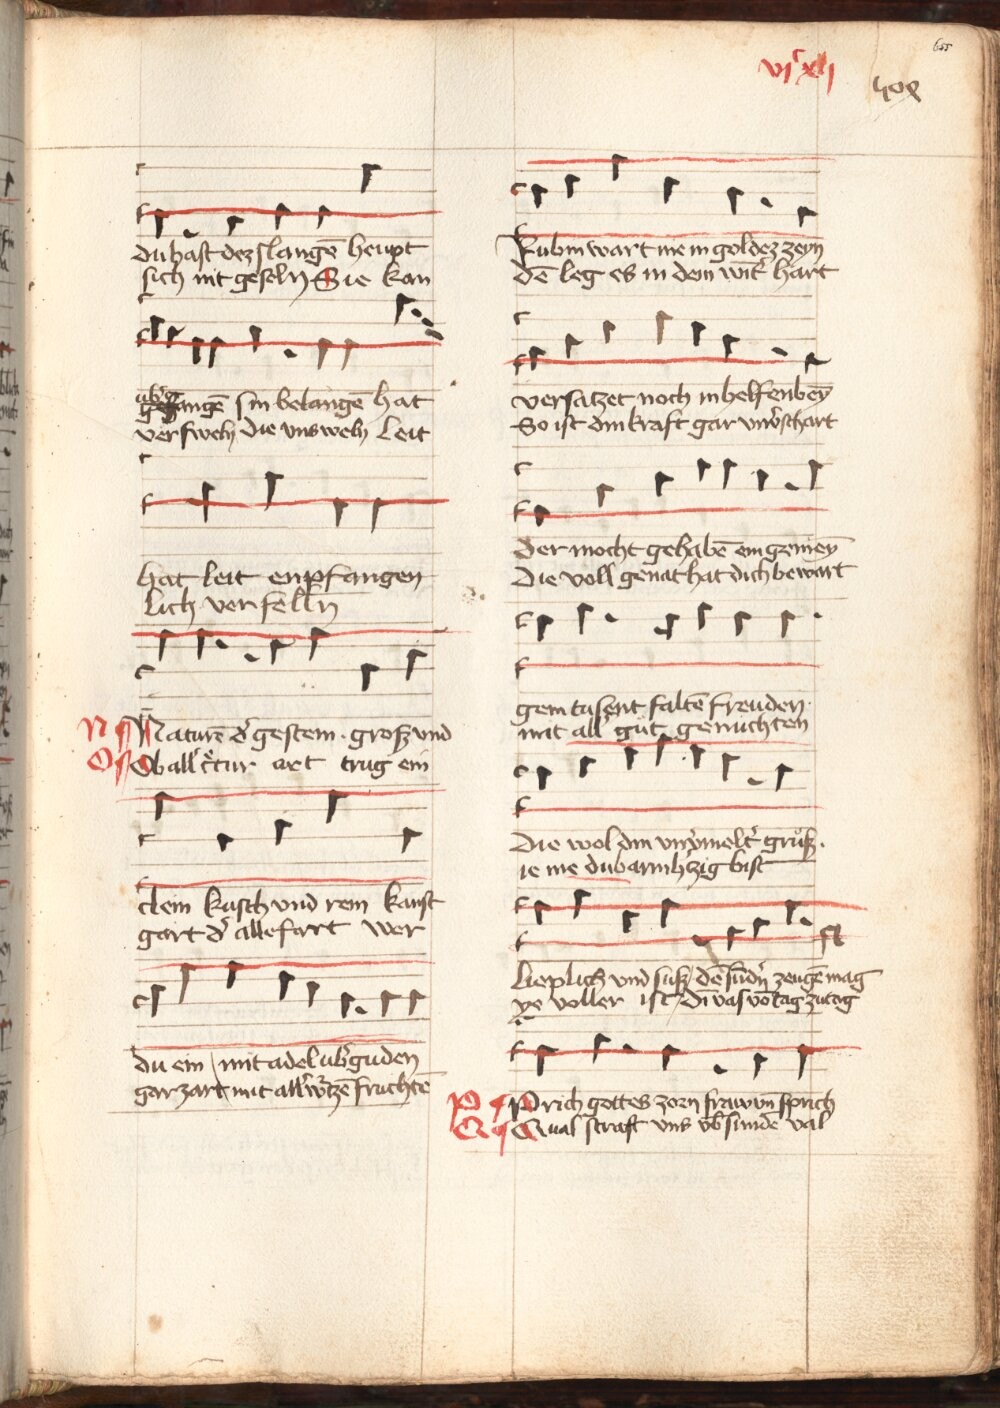 655
du hast dez slangē heupt
sich nit geseln Sie kan
ub'
gefangē sin belangē hat
versweln die uns weln leit
hat leit enpfangen
lich verfelln
N Naturē d' gestein · grosz und
O Ob all c'tur art trug ein
clein kusch und rein kanst
gart d' allefart wer
du ein mit adel ub'guden
gar zart mit all' w'tzē fruchtē
Rubin wart nie in goldez zeyn
dē leg es in dem wit' hart
versatzet noch in helfenbeȳ
So ist din kraft gar unv'schart
der mocht gehabē ein gemeȳ
Die voll genat hat dich bewart
gem tusent faltē freuden ·
mit all' gut genuchten
die wol din
ie me du barmh'zig bist
lieplich und susz dē sund'n zeugē mag
ye voller ist di vas vō tag zu tag
P Prich gottes zorn frauw uñ sprich
Q Qual straft uns ub' sunde val